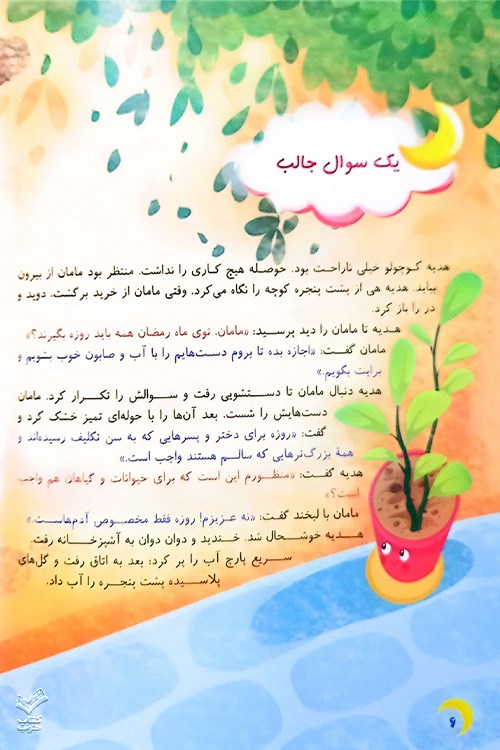 یک سوال جالب
هدیه کوچولو خیلی ناراحت بود. حوصله هیچ کاری را نداشت. منتظر بود مامان از بیرون
بیاید. هدیه هی از پشت پنجره کوچه را نگاه می‌کرد. وقتی مامان از خرید برگشت، دوید و
در را باز کرد.
هدیه تا مامان را دید پرسید: «مامان، توی ماه رمضان همه باید روزه بگیرند؟»
مامان گفت: «اجازه بده تا بروم دست‌هایم را با آب و صابون خوب بشویم و
برایت بگویم.»
هدیه دنبال مامان تا دستشویی رفت و سوالش را تکرار کرد. مامان
دست‌هایش را شست. بعد آن‌ها را با حوله‌ای تمیز خشک کرد و
گفت: «روزه برای دختر و پسرهایی که به سن تکلیف رسیده‌اند و
همهٔ بزرگ‌ترهایی که سالم هستند واجب است.»
هدیه گفت: «منظورم این است که برای حیوانات و گیاهان هم واجب
است؟»
مامان با لبخند گفت: «نه عزیزم! روزه فقط مخصوص آدم‌هاست.»
هدیه خوشحال شد. خندید و دوان دوان به آشپزخانه رفت.
سریع پارچ آب را پر کرد؛ بعد به اتاق رفت و گل‌های
پلاسیده پشت پنجره را آب داد.
۶